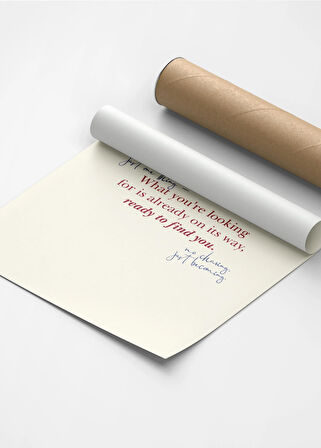 Just one thing –
What you're looking
for is already on its way,
ready to find you.
no chasing.
Just becoming.